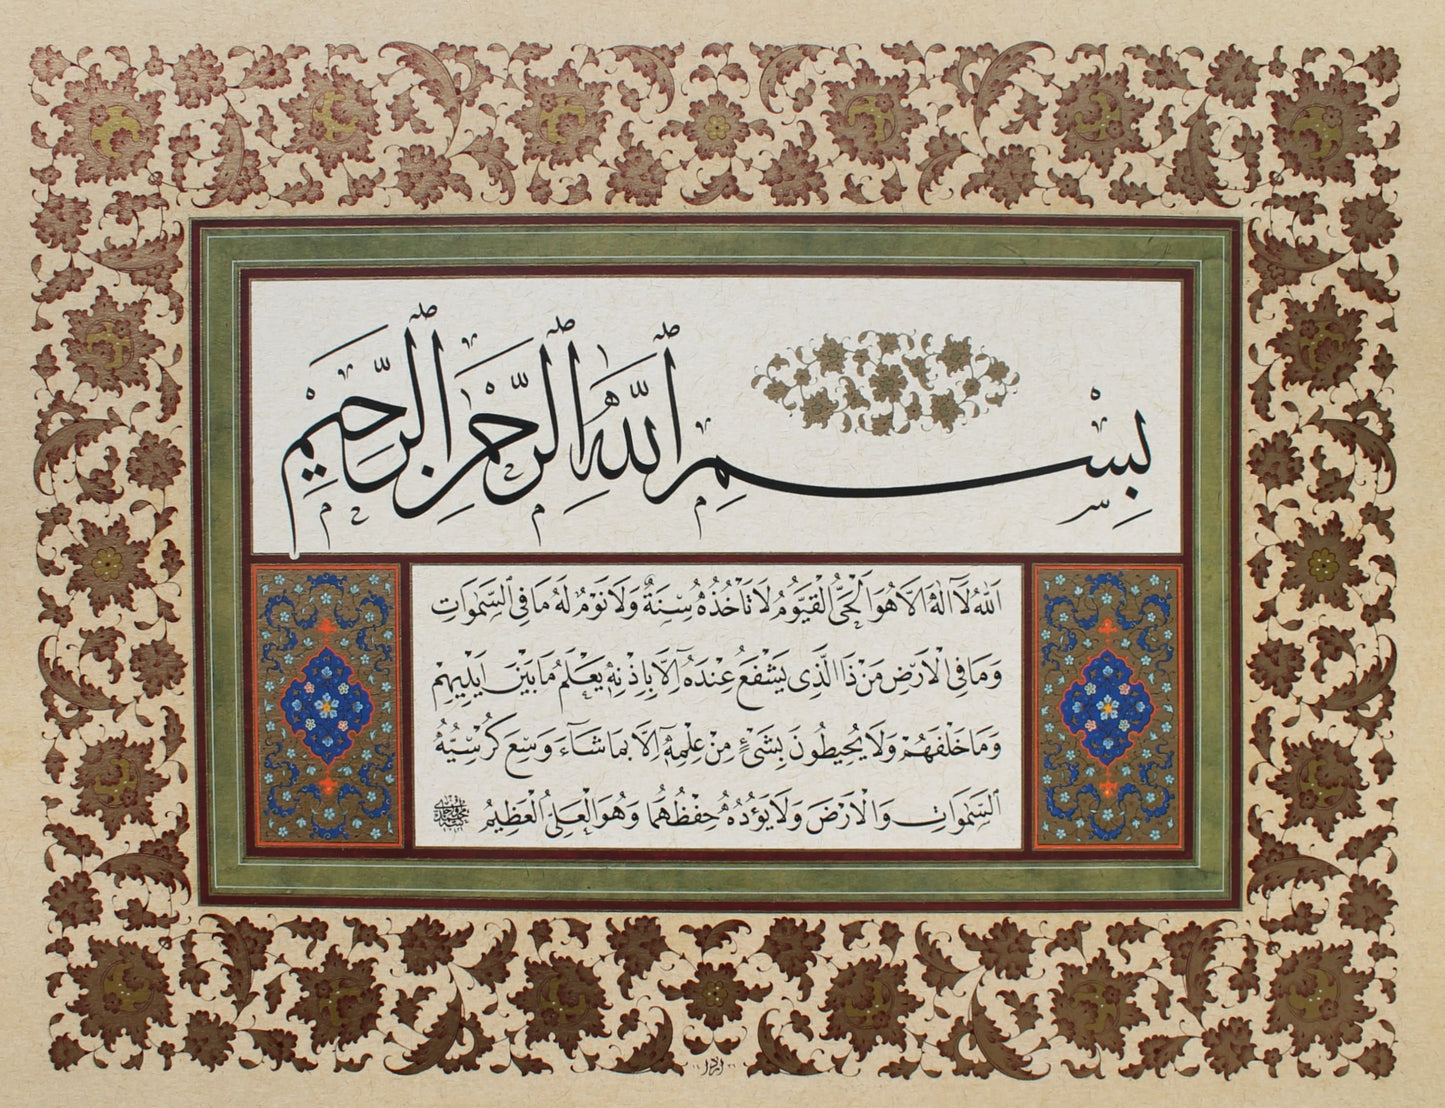 بِسْمِ ٱللّٰهِ ٱلرَّحْمٰنِ ٱلرَّحِيمِ
اَللّٰهُ لَآ اِلٰهَ اِلَّا هُوَ اَلْحَىُّ الْقَيُّومُ لَا تَأْخُذُهُ سِنَةٌ وَلَا نَوْمٌ لَهُ مَا فِى ٱلسَّمٰوَاتِ
وَمَا فِى الْاَرْضِ مَنْ ذَا الَّذِى يَشْفَعُ عِنْدَهُ اِلَّا بِاِذْنِهٖ يَعْلَمُ مَا بَيْنَ اَيْدِيهِمْ
وَمَا خَلْفَهُمْ وَلَا يُحِيطُونَ بِشَىْءٍ مِنْ عِلْمِهٖٓ اِلَّا بِمَا شَآءَ وَسِعَ كُرْسِيُّهُ
ٱلسَّمٰوَاتِ وَالْاَرْضَ وَلَا يَؤُدُهُ حِفْظُهُمَا وَهُوَ الْعَلِىُّ الْعَظِيمُ